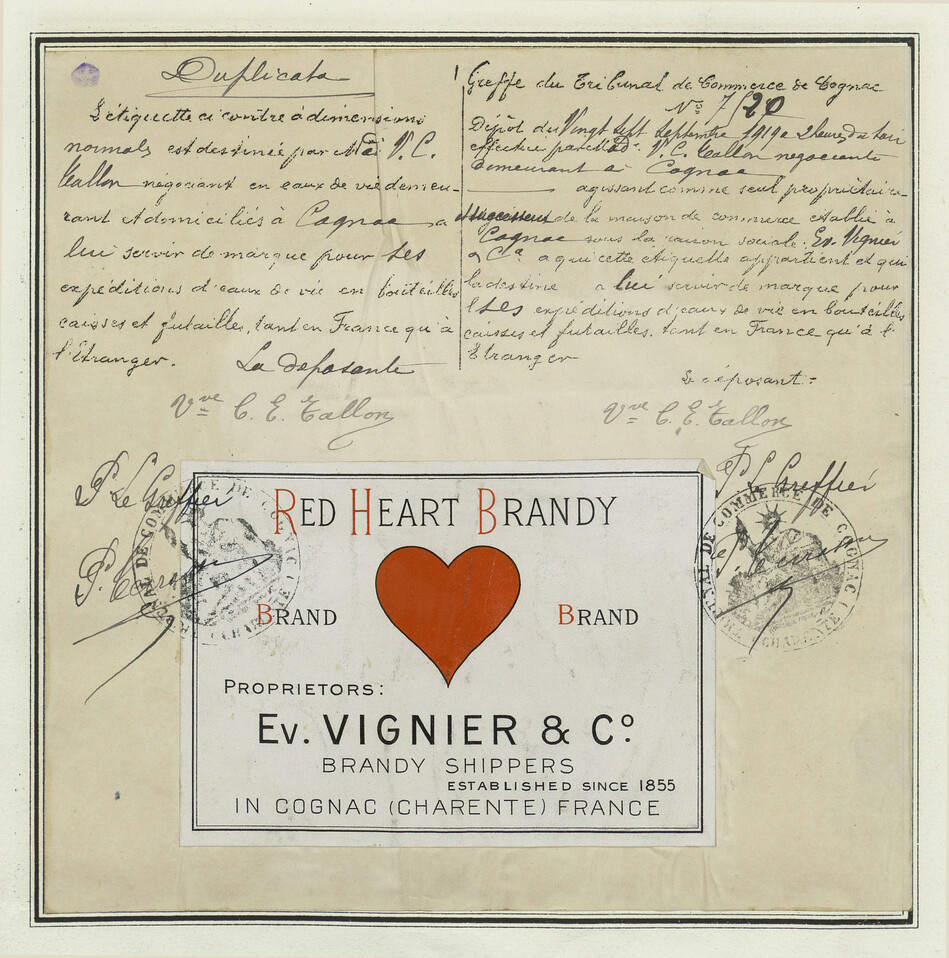 Duplicata
L'étiquette ci contre à dimensions
normales est destinée par Mad. V. C.
Tallon négociant en eaux de vie demeu-
rant et domiciliés à Cognac a
lui servir de marque pour ses
expéditions d'eaux de vie en bouteilles
caisses et futailles, tant en France qu'à
l'Etranger.
La déposante
Vve C. E. Tallon
P. Le Greffier
Greffe du Tribunal de Commerce de Cognac
No 7/20
Dépôt du Vingt sept Septembre 1919 à 2 heures du soir
effectué par Mad. V. C. Tallon négociante
demeurant à Cognac
agissant comme seul propriétaire
successeur de la maison de commerce etablie à
Cognac sous la raison sociale: Ev. Vignier
& Cie a qui cette etiquette appartient et qui
la destine a lui servir de marque pour
ses expéditions d'eaux de vie en bouteilles
caisses et futailles, tant en France qu'à l'
Etranger
Le déposant =
Vve C. E. Tallon
P. Le Greffier
TRIBUNAL DE COMMERCE DE COGNAC (CHARENTE)
TRIBUNAL DE COMMERCE DE COGNAC (CHARENTE)
RED HEART BRANDY
BRAND BRAND
PROPRIETORS:
Ev. VIGNIER & Co.
BRANDY SHIPPERS
ESTABLISHED SINCE 1855
IN COGNAC (CHARENTE) FRANCE